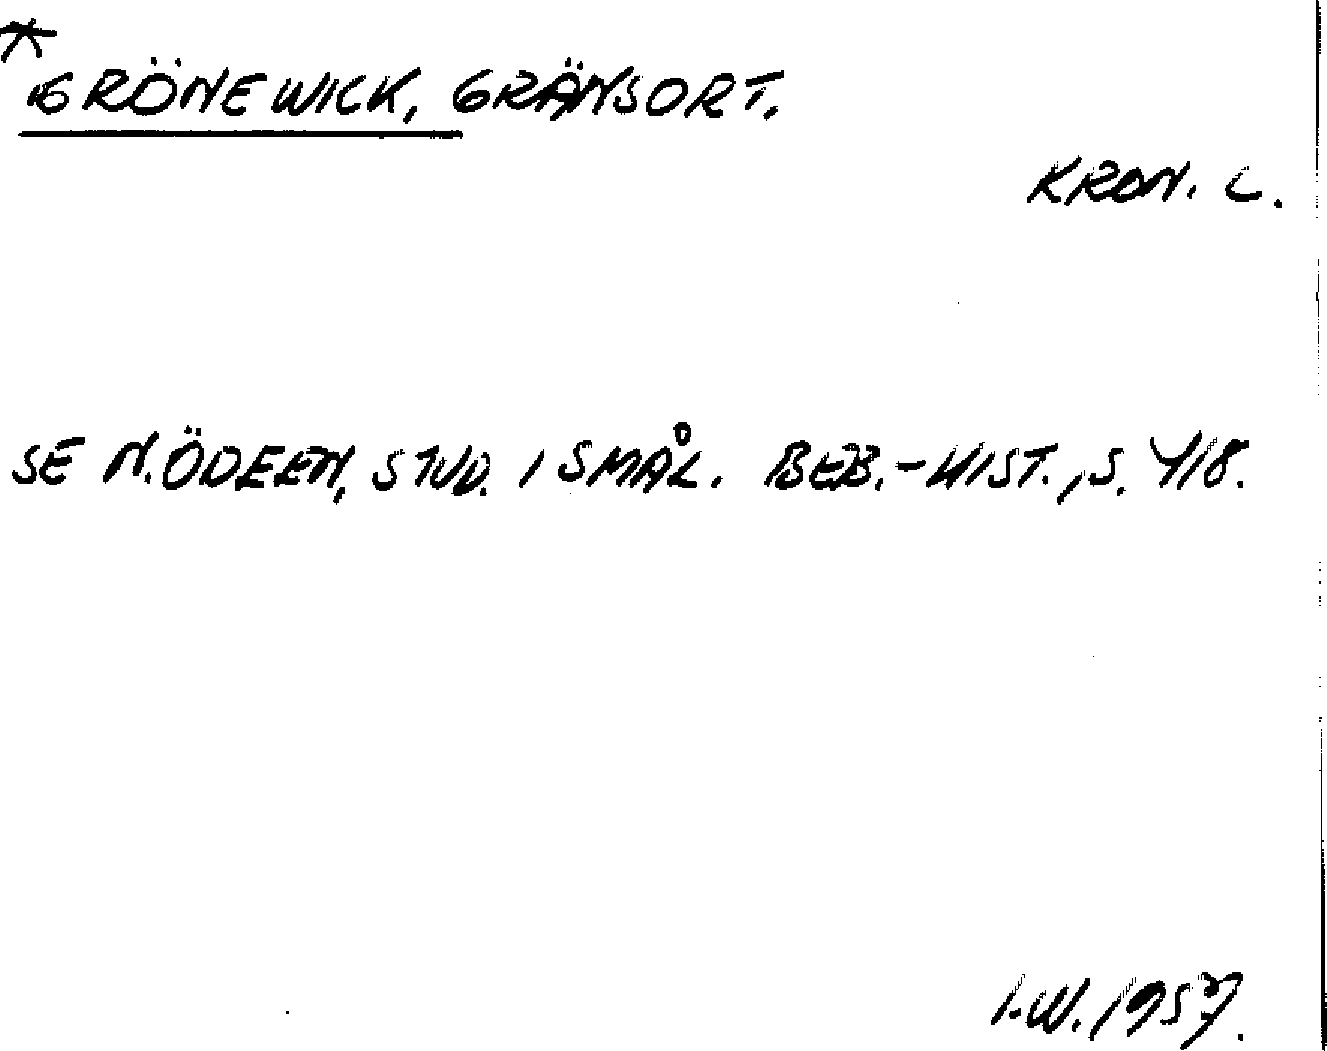 *GRÖNEWICK, GRÄNSORT.
KRON. L.
SE N.ÖDEEN, STUD. I SMÅL. BEB.-HIST., S. 418.
I.W. 1957.